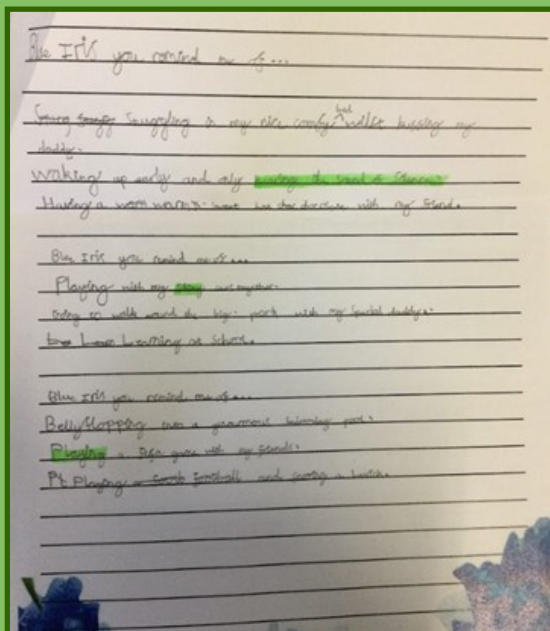 Blue Iris you remind me of...
Snuggling in my nice comfy bed whilst kissing my
daddy.
Waking up early and only hearing the sound of silence.
Having a warm with my friend.
Blue Iris you remind me of...
Playing with my together.
Going on walk around the big park with my special daddy.
Learning at school.
Blue Iris you remind me of...
Bellyflopping over a swimming pool.
Playing a game with my friends.
Pt Playing football and scoring a